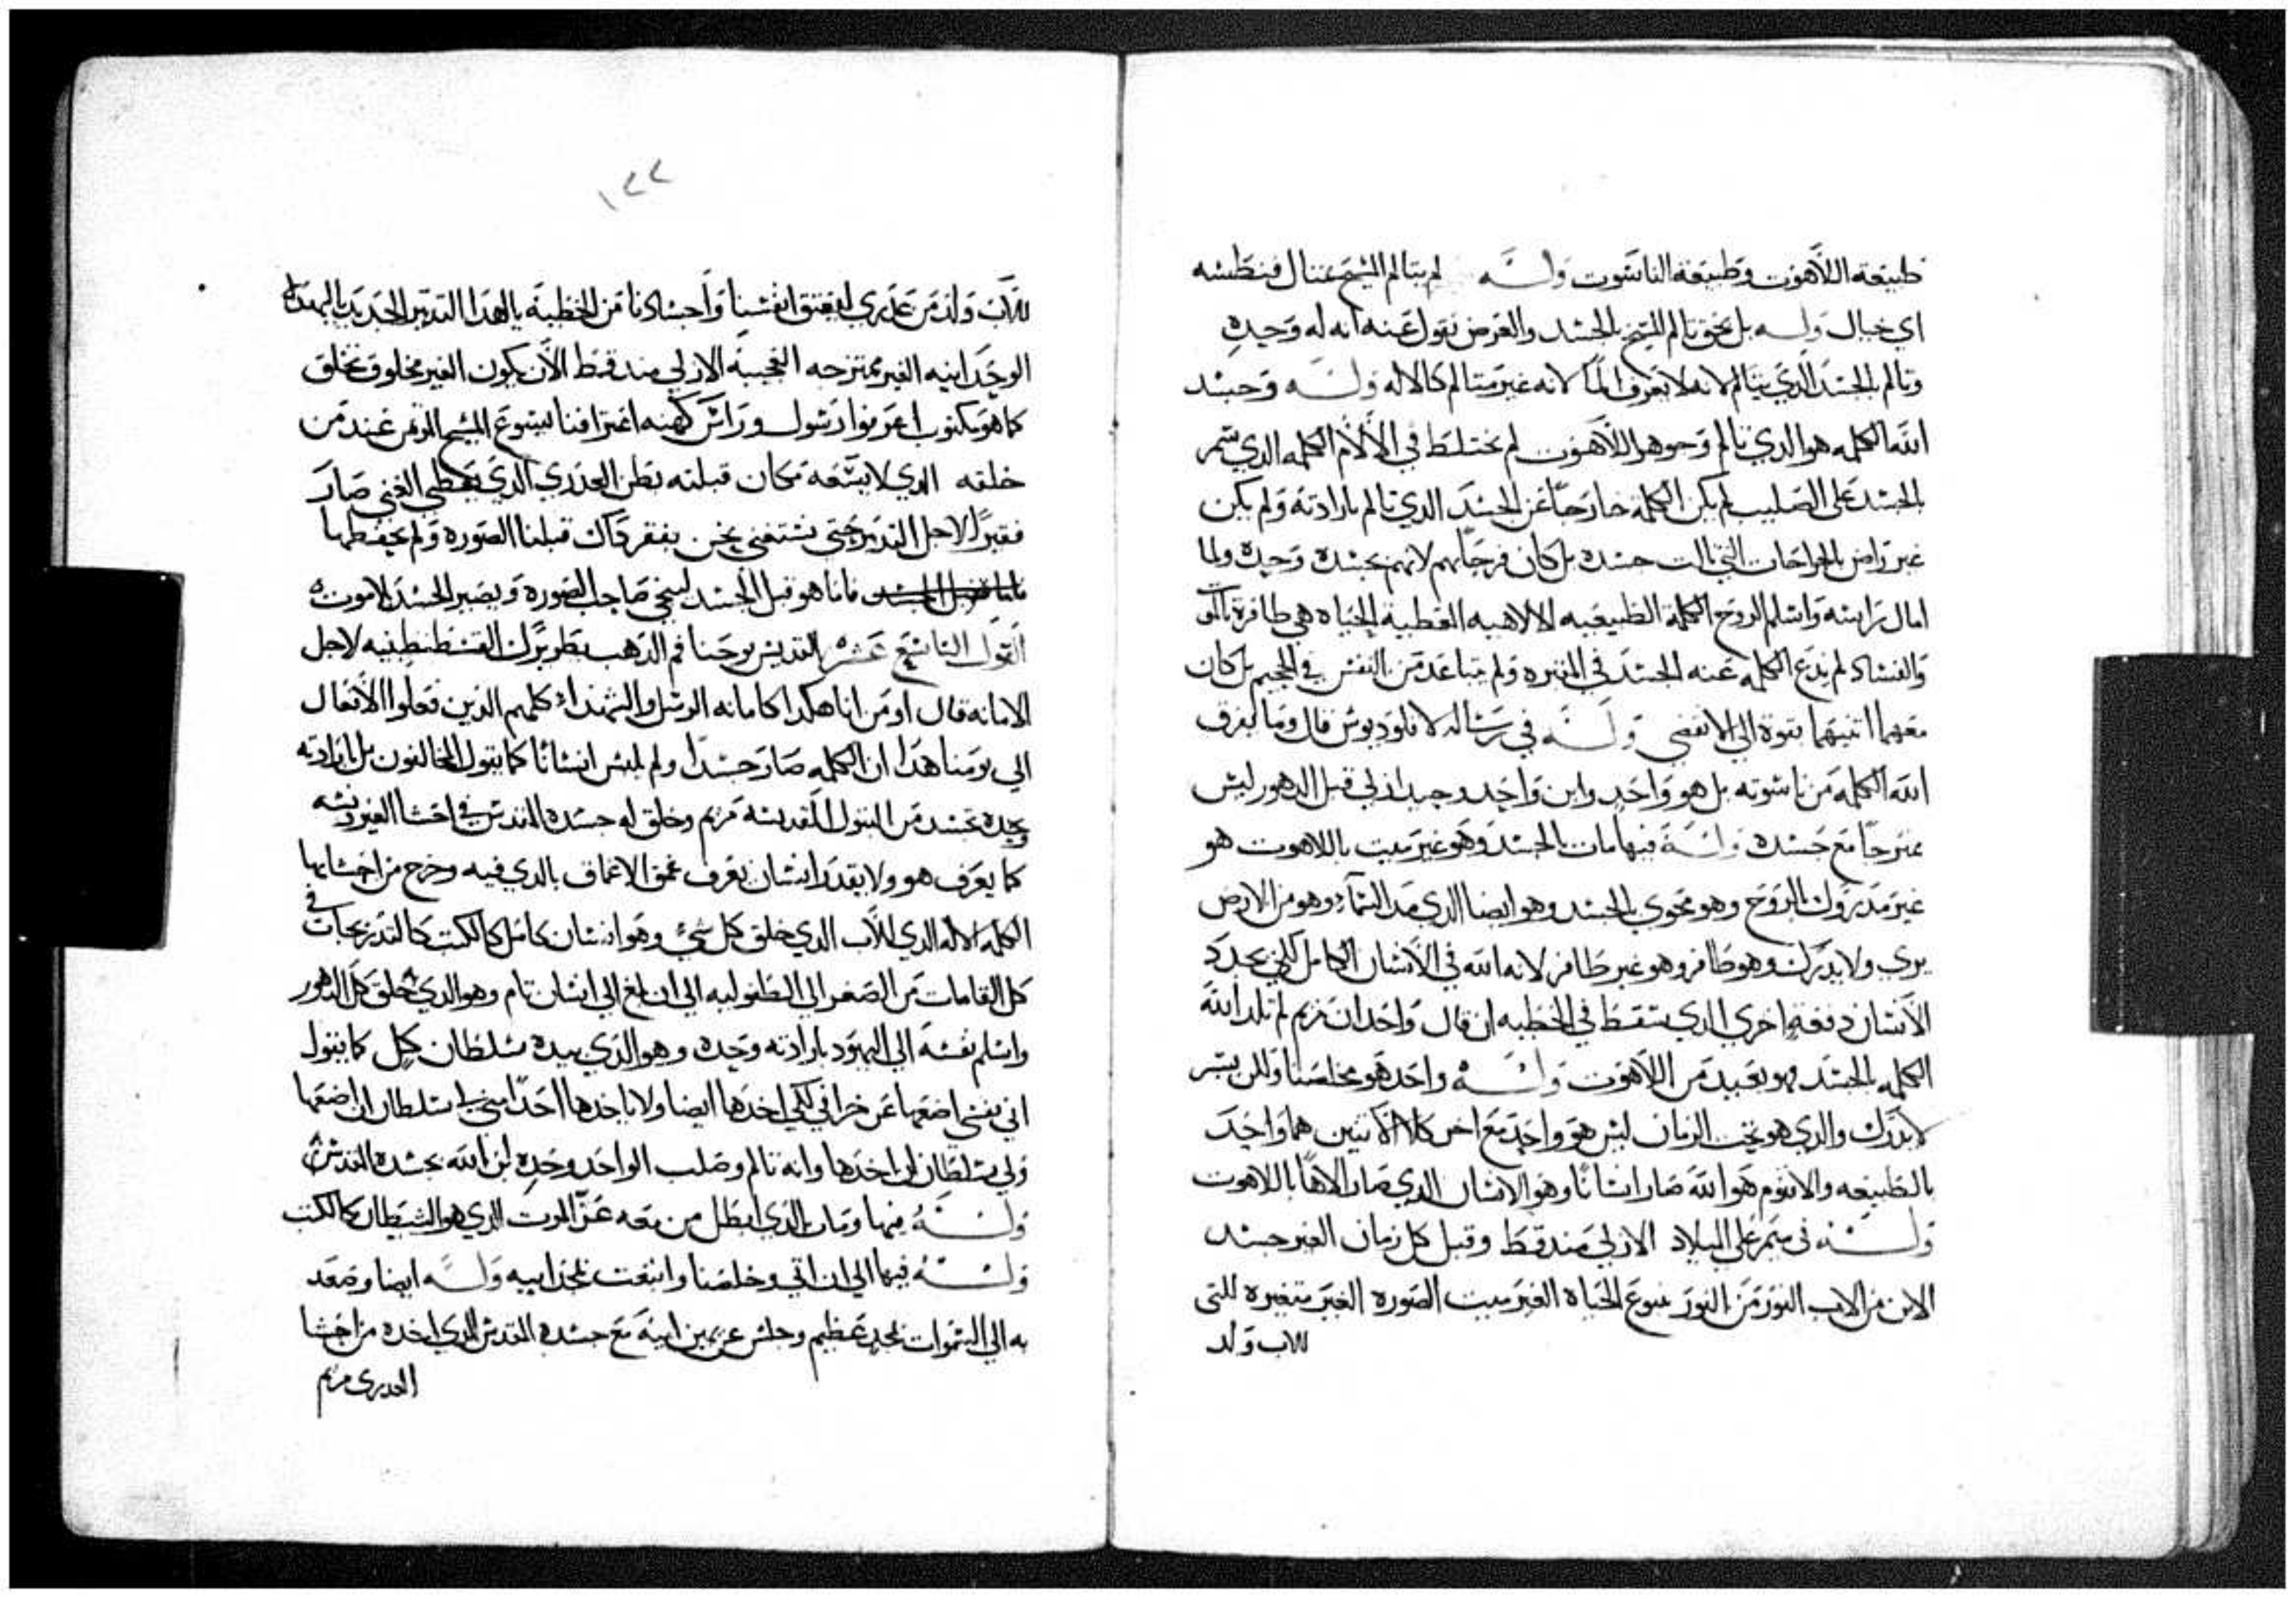 طبيعة اللاهوت وطبيعة الناسوت وله لم يتالم المسيح عنا ال فنطسه
اي خيال وله بل بحق تالم المسيح بالجسد والغرض نقول عنه انه له وحيده
وتالم بالجسد الدي يتالم لانه لا يعرف الما لانه غير متالم كالاله وله وحسد
الله الكلمه هو الدي تالم وجوهر اللاهوت لم يختلط في الالام الكلمه الدي سمر
بالجسد على الصليب لم يكن الكلمة خارجا عن الجسد الدي تالم بارادته ولم يكن
غير راض بالجراحات التي نالت جسده بل كان فرحا بهم لانهم بجسده وحيده ولما
امال راسه واسلم الروح الكلمة الطبيعيه الالاهيه المعطية الحياه هي ظافرة بالموت
والفساد لم يدع الكلمه عنه الجسد في المقبره ولم يتباعد من النفس في الجحيم بل كان
معهما اتنيهما بقوة الي الانقضى وله في رساله لاقلوديوس قال وما يفرق
الله الكلمه من ناسوته بل هو واحد وابن واحد وحيد ازلي قبل الدهور ليس
ممتزجا مع جسده وله فيها مات بالجسد وهو غير ميت باللاهوت هو
غير مدروك بالروح وهو محوي بالجسد وهو ايضا الدي مد السما وهو من الارض
يري ولا يدرك وهو ظافر وهو غير ظافر لانه الله في الانسان الكامل لكي يجدد
الانسان دفعة اخري الدي سقط في الخطيه ان قال واحد ان مريم لم تلد الله
الكلمه بالجسد فهو بعيد من اللاهوت وله واحد هو مخلصنا وللن يسر
لا يدرك والدي هو تحت الزمان ليس هو واحد مع اخر كلا الاتنين هما واحد
بالطبيعه والاقنوم هو الله صار انسانا وهو الانسان الدي صار الاها باللاهوت
وله في ميمر على الميلاد الازلي مند قط وقبل كل زمان الغير جسد
الابن من الاب النور من النور ينبوع الحياه الغير ميت الصوره الغير متغيره للتي
للاب ولد
١٢٢
للاب ولد من عدري ليعتق انفسنا واجسادنا من الخطية يا لهدا التدبير الجديد يا لهدا
الوحدانيه الغير ممتزجه العجيبه الازلي مند قط الان يكون الغير مخلوق تخلق
كما هو مكتوب اعرفوا رسول وراس كهنه اعترافنا يسوع المسيح المؤتمن عند من
خلقه الدي لا يسعه مكان قبلته بطن العدري الدي يعطي الغني صار
فقيرا لاجل التدبير حتى نستغني نحن بفقر داك قبلنا الصوره ولم نحفظها
فاما هو قبل الجسد لينجي صاحب الصوره ويصير الجسد بلا موت
القول التاسع عشر القديس يوحنا فم الدهب بطريرك القسطنطينيه لاجل
الامانه قال اومن انا هكدا كامانه الرسل والشهدا كلهم الدين فعلوا الافعال
الي يومنا هدا ان الكلمه صار جسدا ولم يلبس انسانا كما يقول المخالفون بل بارادته
وحده تجسد من البتول القديسه مريم وخلق له جسده المقدس في احشا الغير دنسه
كما يعرف هو ولا يقدر انسان يعرف عمق الاعماق بالدي فيه وخرج من احشايها
الكلمه الاله الدي للاب الدي خلق كل شي وهو انسان كامل كالكتب كالتدبير بحات في
كل القامات من الصغر الي الطفوليه الي ان بلغ الي انسان تام وهو الدي خلق كل الدهور
واسلم نفسه الي اليهود بارادته وحده وهو الدي بيده سلطان كل كما يقول
اني نفسي اضعها عن خرافي لكي اخدها ايضا ولا ياخدها احدا مني لي سلطان ان اضعها
ولي سلطان ان اخدها وانه تالم وصلب الواحد وحده ابن الله بجسده المقدس
وله فيها ومات الدي ابطل من معه عز الموت الدي هو الشيطان كالكتب
وله فيها الي ان اتي وخلصنا وانبعت بمجد ابيه وله ايضا وصعد
به الي السموات بمجد عظيم وجلس عن يمين ابيه مع جسده المقدس الدي اخده من احشا
العدري مريم